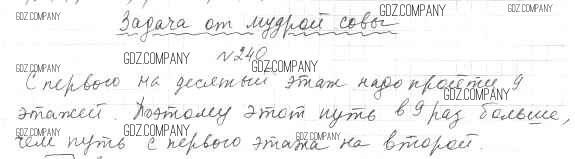 GDZ.COMPANY GDZ.COMPANY
Задача от мудрой совы
GDZ.COMPANY №240 GDZ.COMPANY
GDZ.COMPANY GDZ.COMPANY
С первого на десятый этаж надо пройти 9
GDZ.COMPANY
этажей. Поэтому этот путь в 9 раз больше,
GDZ.COMPANY GDZ.COMPANY GDZ.COMPANY
чем путь с первого этажа на второй.